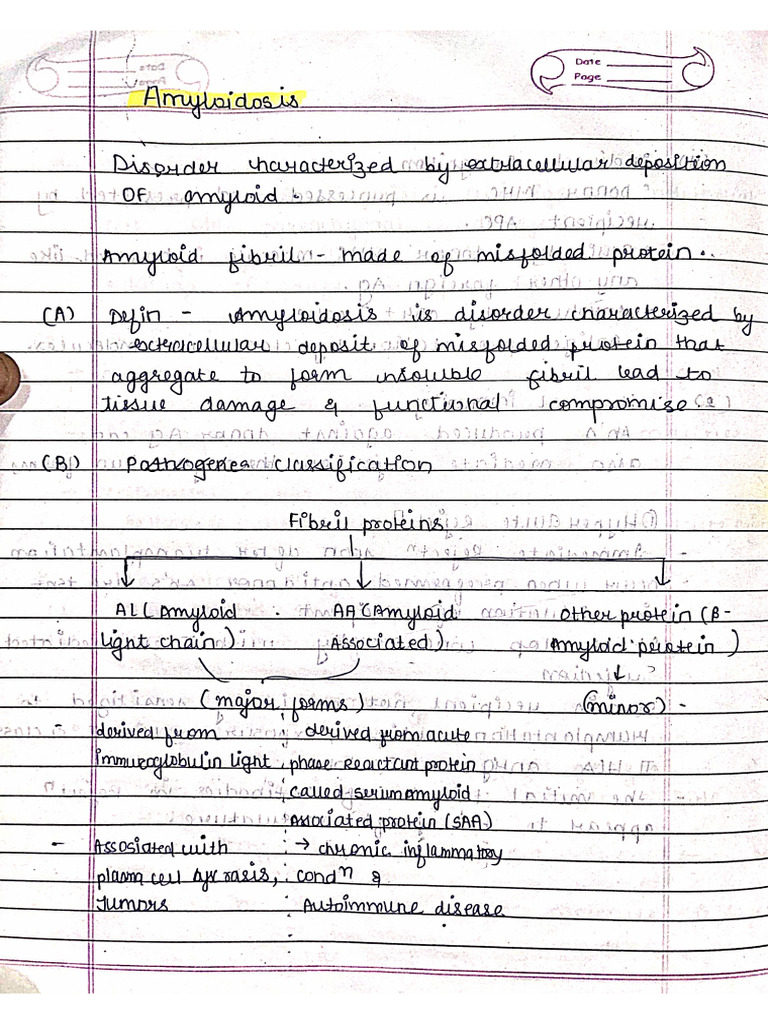 Date
Page
Amyloidosis
Disorder characterized by extracellular deposition
OF amyloid.
Amyloid fibril - made of misfolded protein.
(A) Defin - Amyloidosis is disorder characterized by
extracellular deposit of misfolded protein that
aggregate to form insoluble fibril lead to
tissue damage & functional compromise.
(B) Pathogenes classification
Fibril proteins
AL (Amyloid light chain)
AA (Amyloid Associated)
Other protein (B-
Amyloid protein)
(major forms)
(minor) -
- derived from
immunoglobulin light
derived from acute
phase reactant protein
called serum amyloid
Associated protein (SAA)
- Associated with
plasma cell
Tumors
→ chronic inflammatory
condⁿ &
Autoimmune disease